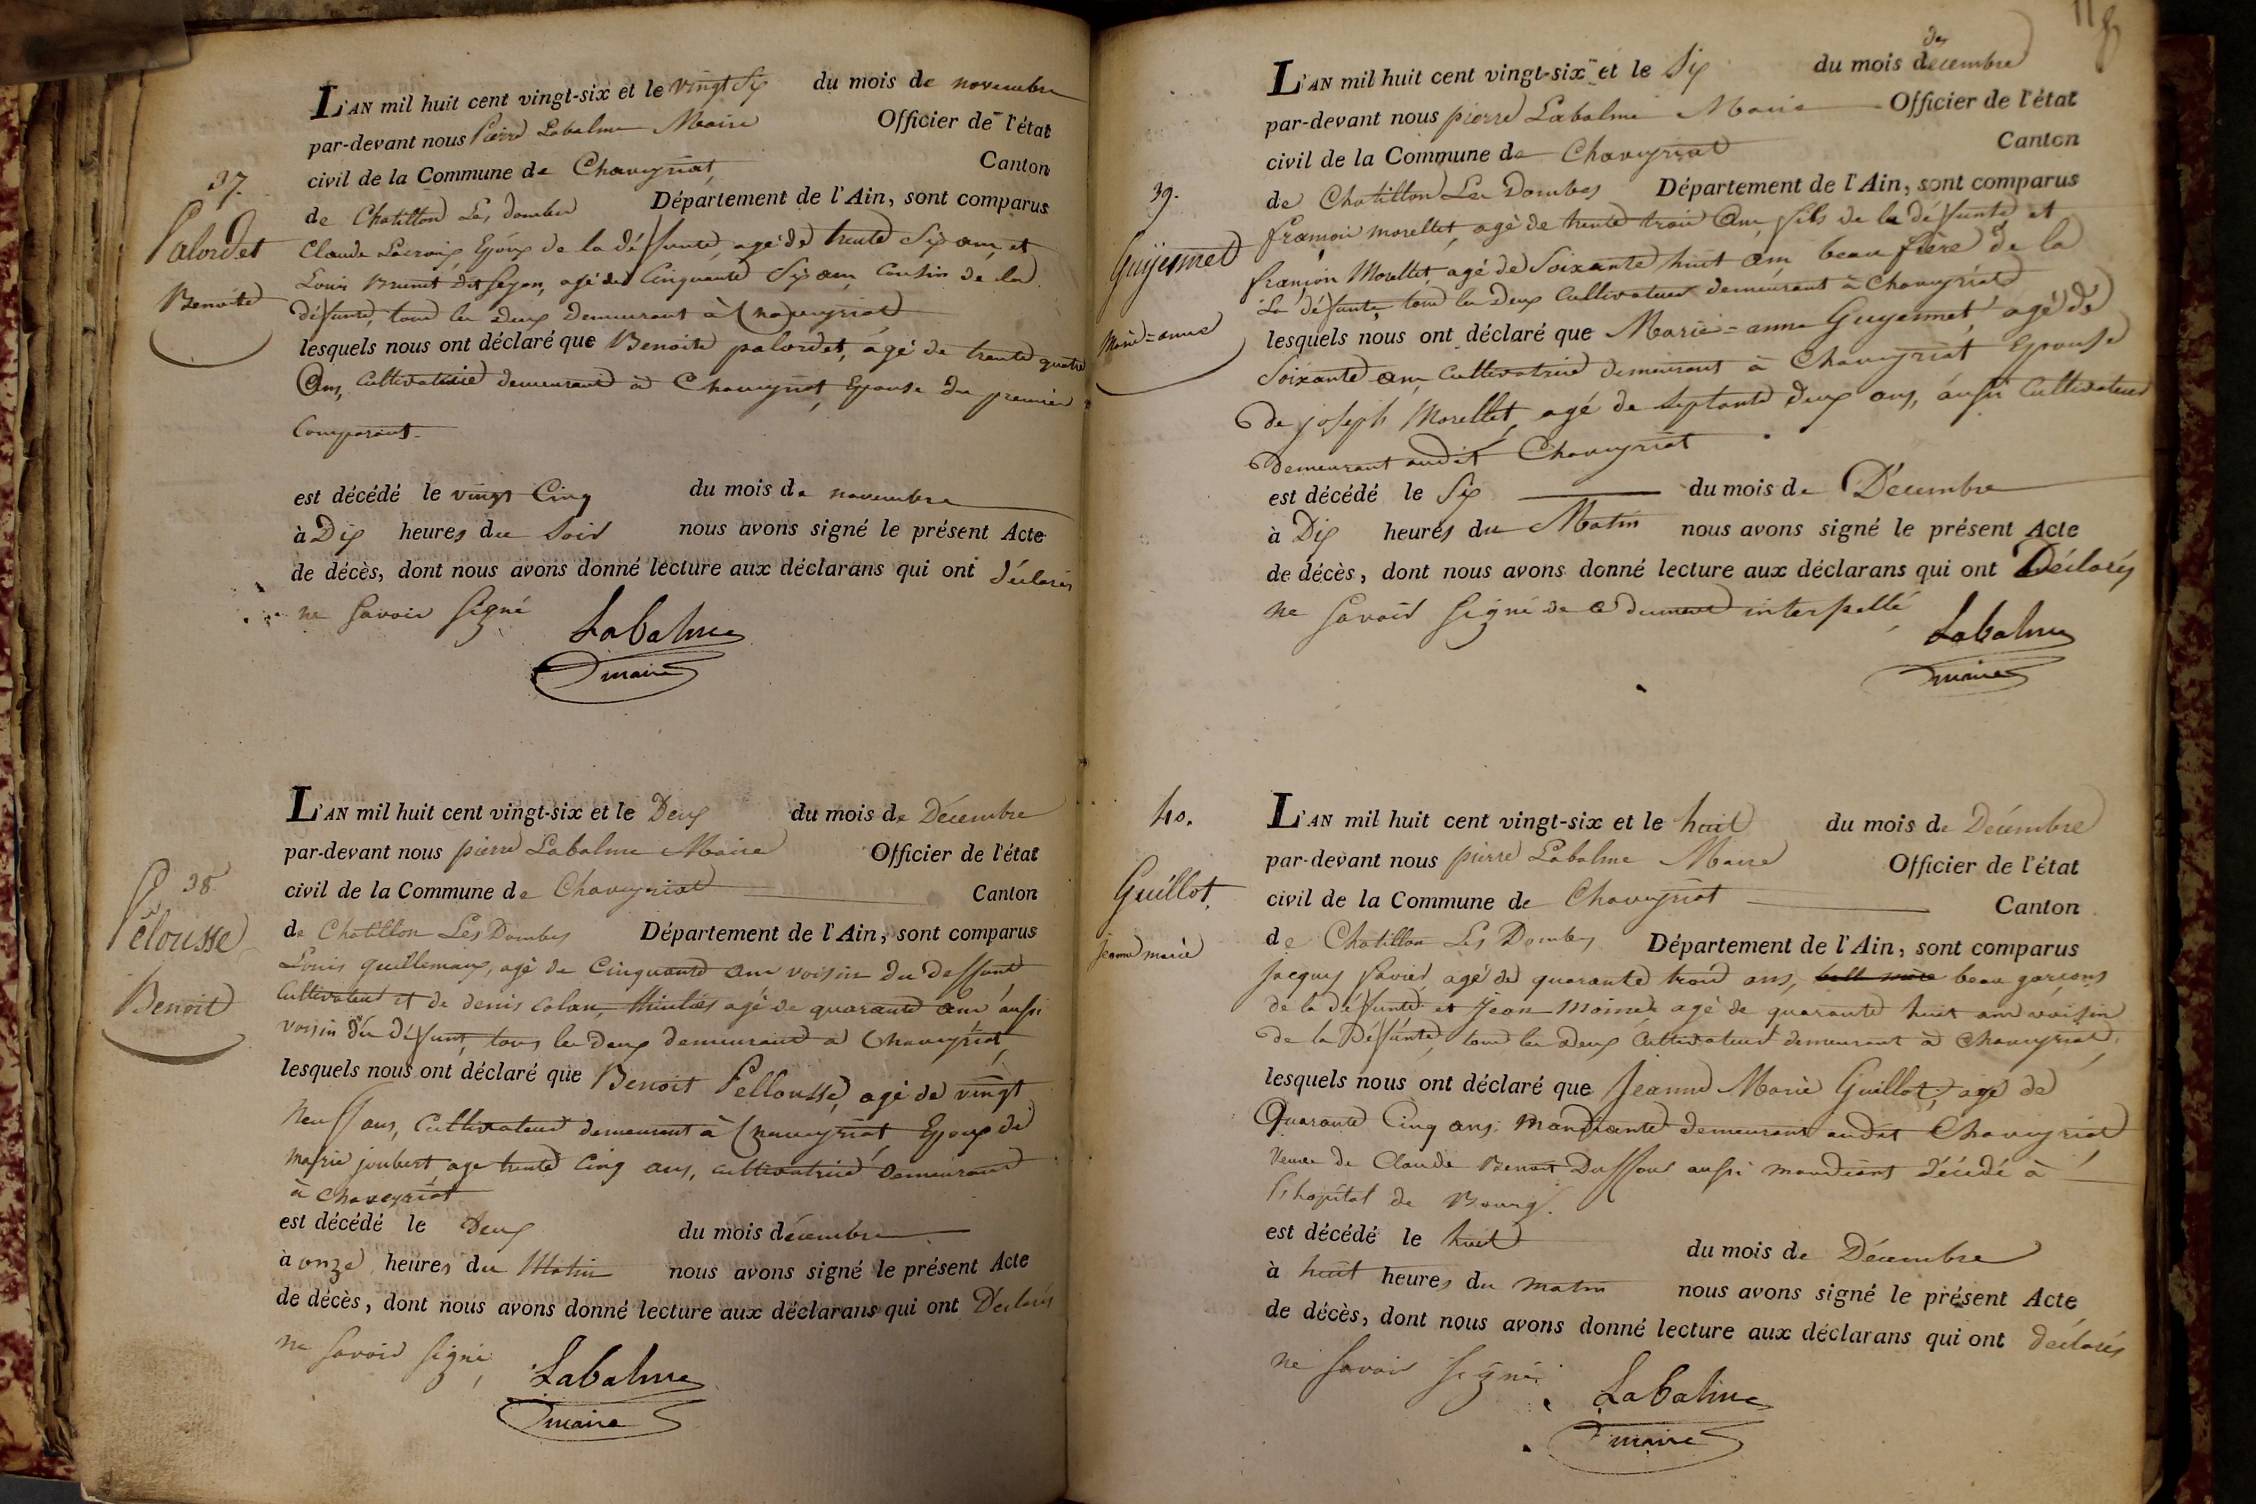 37.
Palordet
Benoite
L'AN mil huit cent vingt-six et le vingt Six du mois de novembre
par-devant nous Pierre Labalme Maire Officier de l'état
civil de la Commune de Chaveyriat Canton
de Chatillon Les dombes Département de l'Ain, sont comparus
Claude Lacroix Epoux de la défunte, agé de trente Six ans, et
Louis Brunet dit agé de Cinquante Six ans Cousin de la
défunte, tous les deux demeurant à Chaveyriat
lesquels nous ont déclaré que Benoite palordet, agé de trente quatre
Ans, Cultivatrice demeurant à Chaveyriat, Epouse du premier
Comparant.
est décédé le vingt Cinq du mois de novembre
à Dix heures du Soir nous avons signé le présent Acte
de décès, dont nous avons donné lecture aux déclarans qui ont déclarés
ne Savoir Signé
Labalme
maire
38
Pelousse
Benoit
L'AN mil huit cent vingt-six et le Deux du mois de Décembre
par-devant nous pierre Labalme Maire Officier de l'état
civil de la Commune de Chaveyriat Canton
de Chatillon Les Dombes Département de l'Ain, sont comparus
Louis Guillemaux, agé de Cinquante ans voisin du deffunt
Cultivateur et de denis agé de quarante ans aussi
voisin du défunt, tous les deux demeurant à Chaveyriat
lesquels nous ont déclaré que Benoit Pellousse, agé de vingt
neuf ans, Cultivateur demeurant à Chaveyriat, Epoux de
marie joubert, age trente Cinq ans, cultivatrice Demeurant
à Chaveyriat
est décédé le Deux du mois décembre
à onze heures du Matin nous avons signé le présent Acte
de décès, dont nous avons donné lecture aux déclarans qui ont Déclarés
ne Savoir Signé
Labalme
maire
118
39.
Guyennet
Marie=anne
L'AN mil huit cent vingt-six et le Six du mois de décembre
par-devant nous pierre Labalme Maire Officier de l'état
civil de la Commune de Chaveyriat Canton
de Chatillon Les Dombes Département de l'Ain, sont comparus
françois morellet, agé de trente trois Ans, fils de la défunte et
françois Morellet, agé de Soixante huit ans beau frère de la
La défunte, tous les Deux Cultivateur demeurant à Chaveyriat
lesquels nous ont déclaré que Marie=anne Guyennet agé de
Soixante ans, Cultivatrice demeurant à Chaveyriat Epouse
de joseph Morellet, agé de Septante Deux ans, aussi Cultivateur
Demeurant audit Chaveyriat
est décédé le Six du mois de Décembre
à Dix heures du Matin nous avons signé le présent Acte
de décès, dont nous avons donné lecture aux déclarans qui ont Déclarés
ne Savoir Signé de ce dument interpellé
Labalme
maire
40.
Guillot
jeanne marie
L'AN mil huit cent vingt-six et le huit du mois de Décembre
par-devant nous pierre Labalme Maire Officier de l'état
civil de la Commune de Chaveyriat Canton
de Chatillon Les Dombes Département de l'Ain, sont comparus
Jacques agé de quarante trois ans, beau garçons
de la défunte et Jean agé de quarante huit ans voisin
de la Défunte, tous les deux Cultivateur demeurant à Chaveyriat,
lesquels nous ont déclaré que Jeanne Marie Guillot, agé de
Quarante Cinq ans, Mandiante demeurant audit Chaveyriat
Veuve de Claude Benoit Duffour aussi mandiant décédé à
L'hopital de Bourg.
est décédé le huit du mois de Décembre
à huit heures du matin nous avons signé le présent Acte
de décès, dont nous avons donné lecture aux déclarans qui ont déclarés
ne Savoir Signé
Labalme
maire